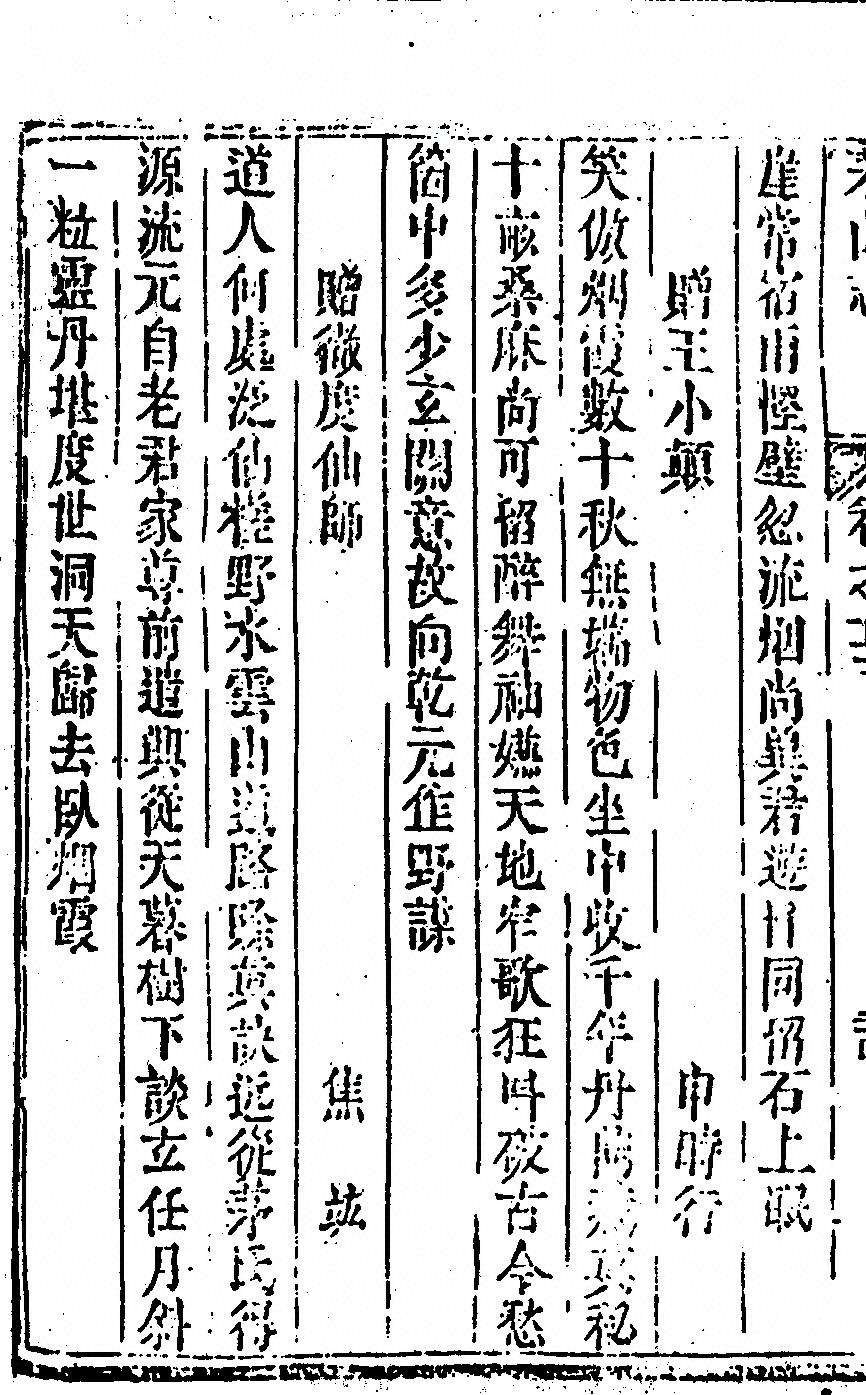 崖常宿雨怪壁忽流烟尚異君遊日同招石上眠
贈王小顛 申時行
笑傲烟霞數十秋無端物色坐中收千年丹 真秘
十畝桑麻尚可留醉舞袖嬌天地窄歌狂叫破古今愁
箇中多少玄關意故向乾元作野謀
贈徹度仙師 焦竑
道人何處泛仙槎野水雲山道路賒真訣近從茅氏得
源流元自老君家尊前遣興從天暮樹下談玄任月斜
一粒靈丹堪度世洞天歸去臥烟霞